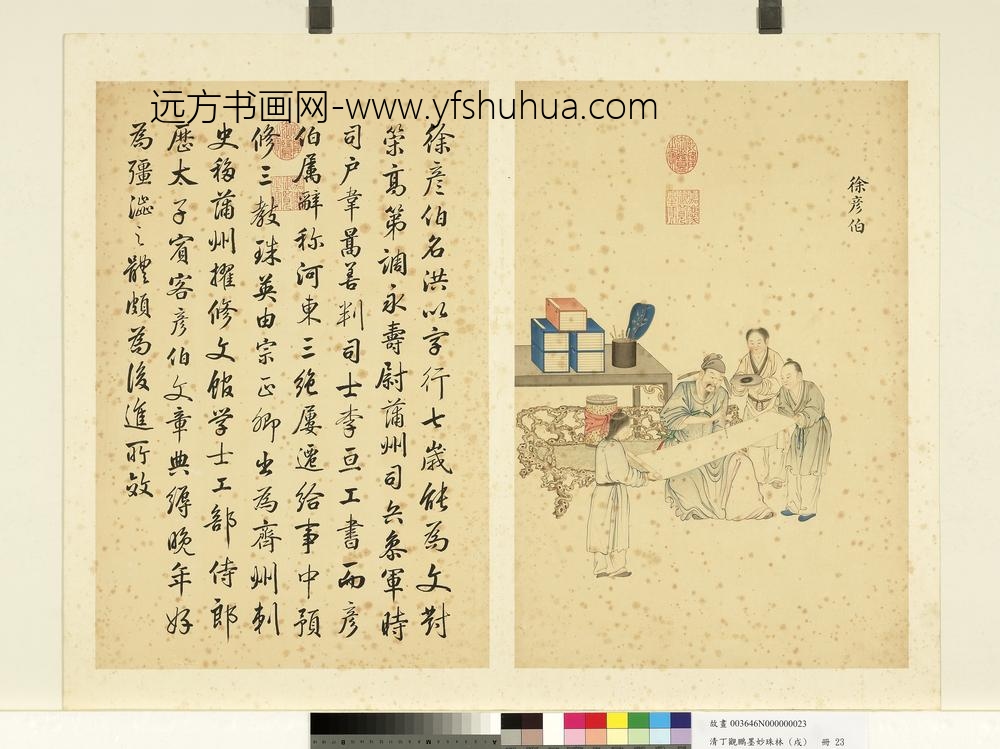 远方书画网-www.yfshuhua.com
徐彦伯
徐彦伯名洪以字行七歳能為文對
策高第調永壽尉蒲州司兵叅軍時
司户韋暠善判司士李亘工書而彦
伯属辭称河東三絶屢遷給事中預
修三教珠英由宗正卿出為齊州刺
史移蒲州擢修文館学士工部侍郎
歴太子賓客彦伯文章典縟晩年好
為彊澁之體頗為後進所效
故畫 003646N000000023
清丁觀鵬墨妙珠林（戌） 冊 23